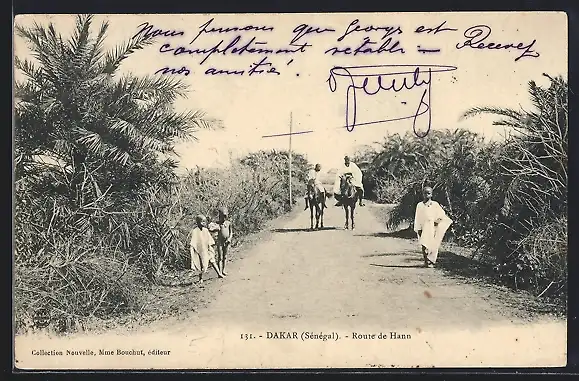 Nous pensons que Georges est
complètement rétabli - Recevez
nos amitiés.
131. - DAKAR (Sénégal). - Route de Hann
Collection Nouvelle, Mme Bouchut, éditeur